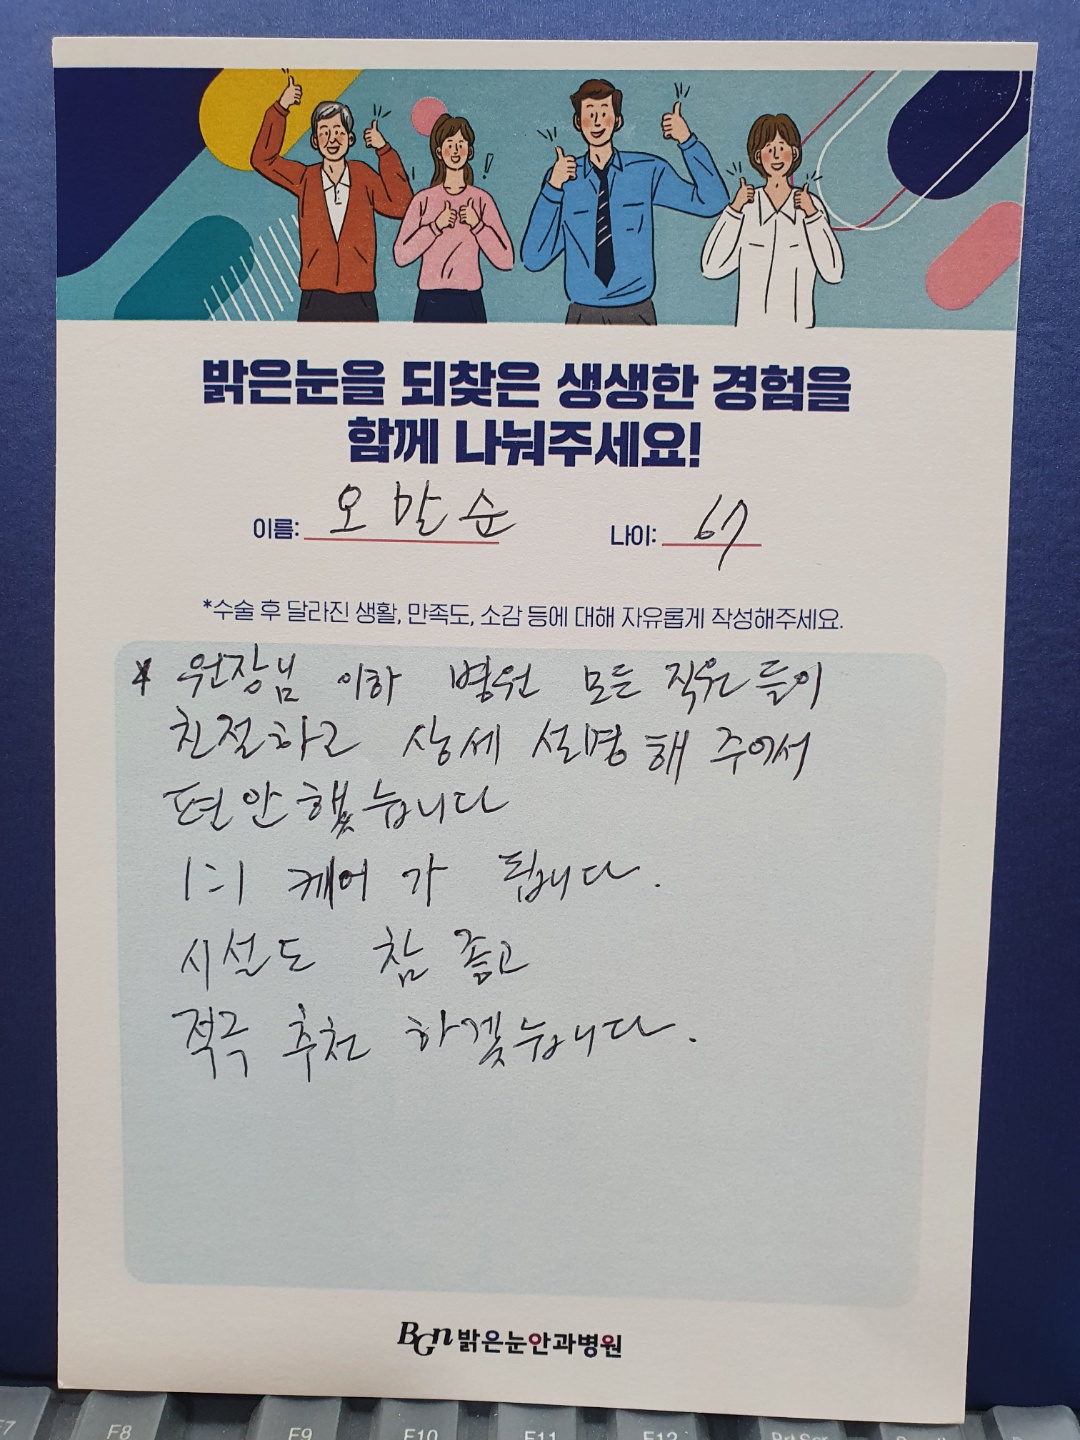 밝은눈을 되찾은 생생한 경험을
함께 나눠주세요!
이름: 오말순 나이: 67
*수술 후 달라진 생활, 만족도, 소감 등에 대해 자유롭게 작성해주세요.
* 원장님 이하 병원 모든 직원들이
친절하고 상세 설명해 주어서
편안했습니다
1:1 케어가 됩니다.
시설도 참 좋고
적극 추천 하겠습니다.
BGN 밝은눈안과병원
F7 F8 F9 F10 F11 F12 PrtScr